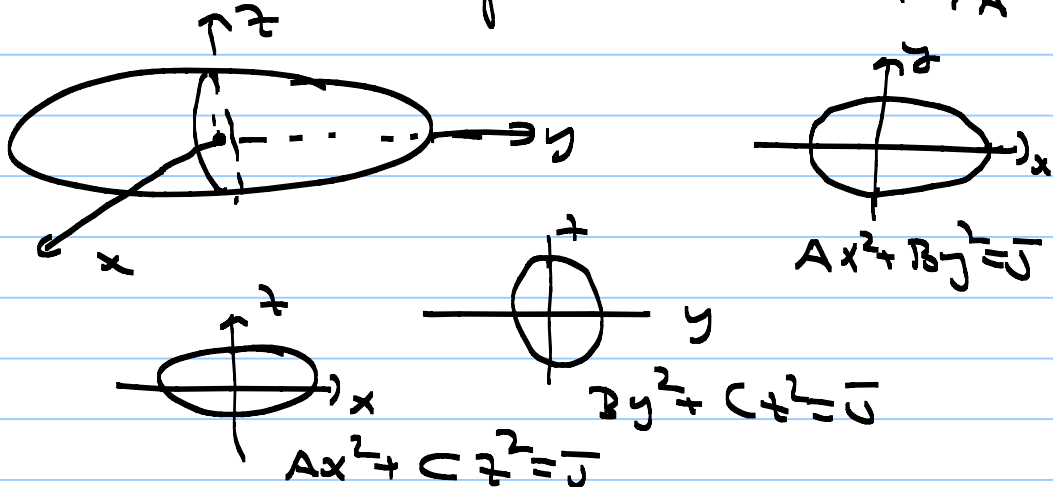 z
y
x
y
x
Ax² + By² = J
z
y
By² + Cz² = J
z
x
Ax² + Cz² = J